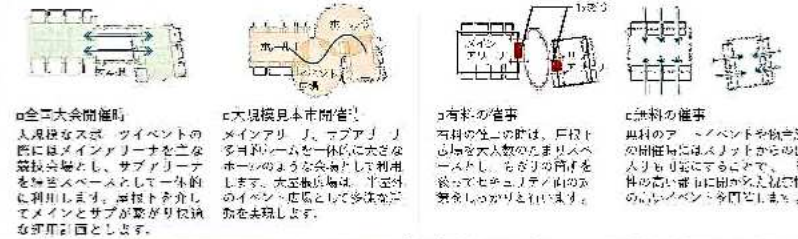 ホール
メイン
アリーナ
□全国大会開催時
大規模なスポーツイベントの
際にはメインアリーナを主な
競技会場とし、サブアリーナ
を練習スペースとして一体的
に利用します。屋根下を介し
てメインとサブが繋がり快適
な運用計画とします。
□大規模見本市開催時
メインアリーナ、サブアリーナ
多目的ルームを一体的に大きな
ホールのような会場として利用
します。大屋根広場は、半屋外
のイベント広場として多様な活
動を実現します。
□有料の催事
有料の催事の時は、屋根下
広場を大人数のたまりスペ
ースとし、もぎりの箇所を
絞ってセキュリティ面の対
策をしっかりと行います。
□無料の催事
無料のアートイベントや物産
の開催時にはスリットからの
入りも可能にすることで、
性の高い都市に開かれた祝祭
の高いイベントを